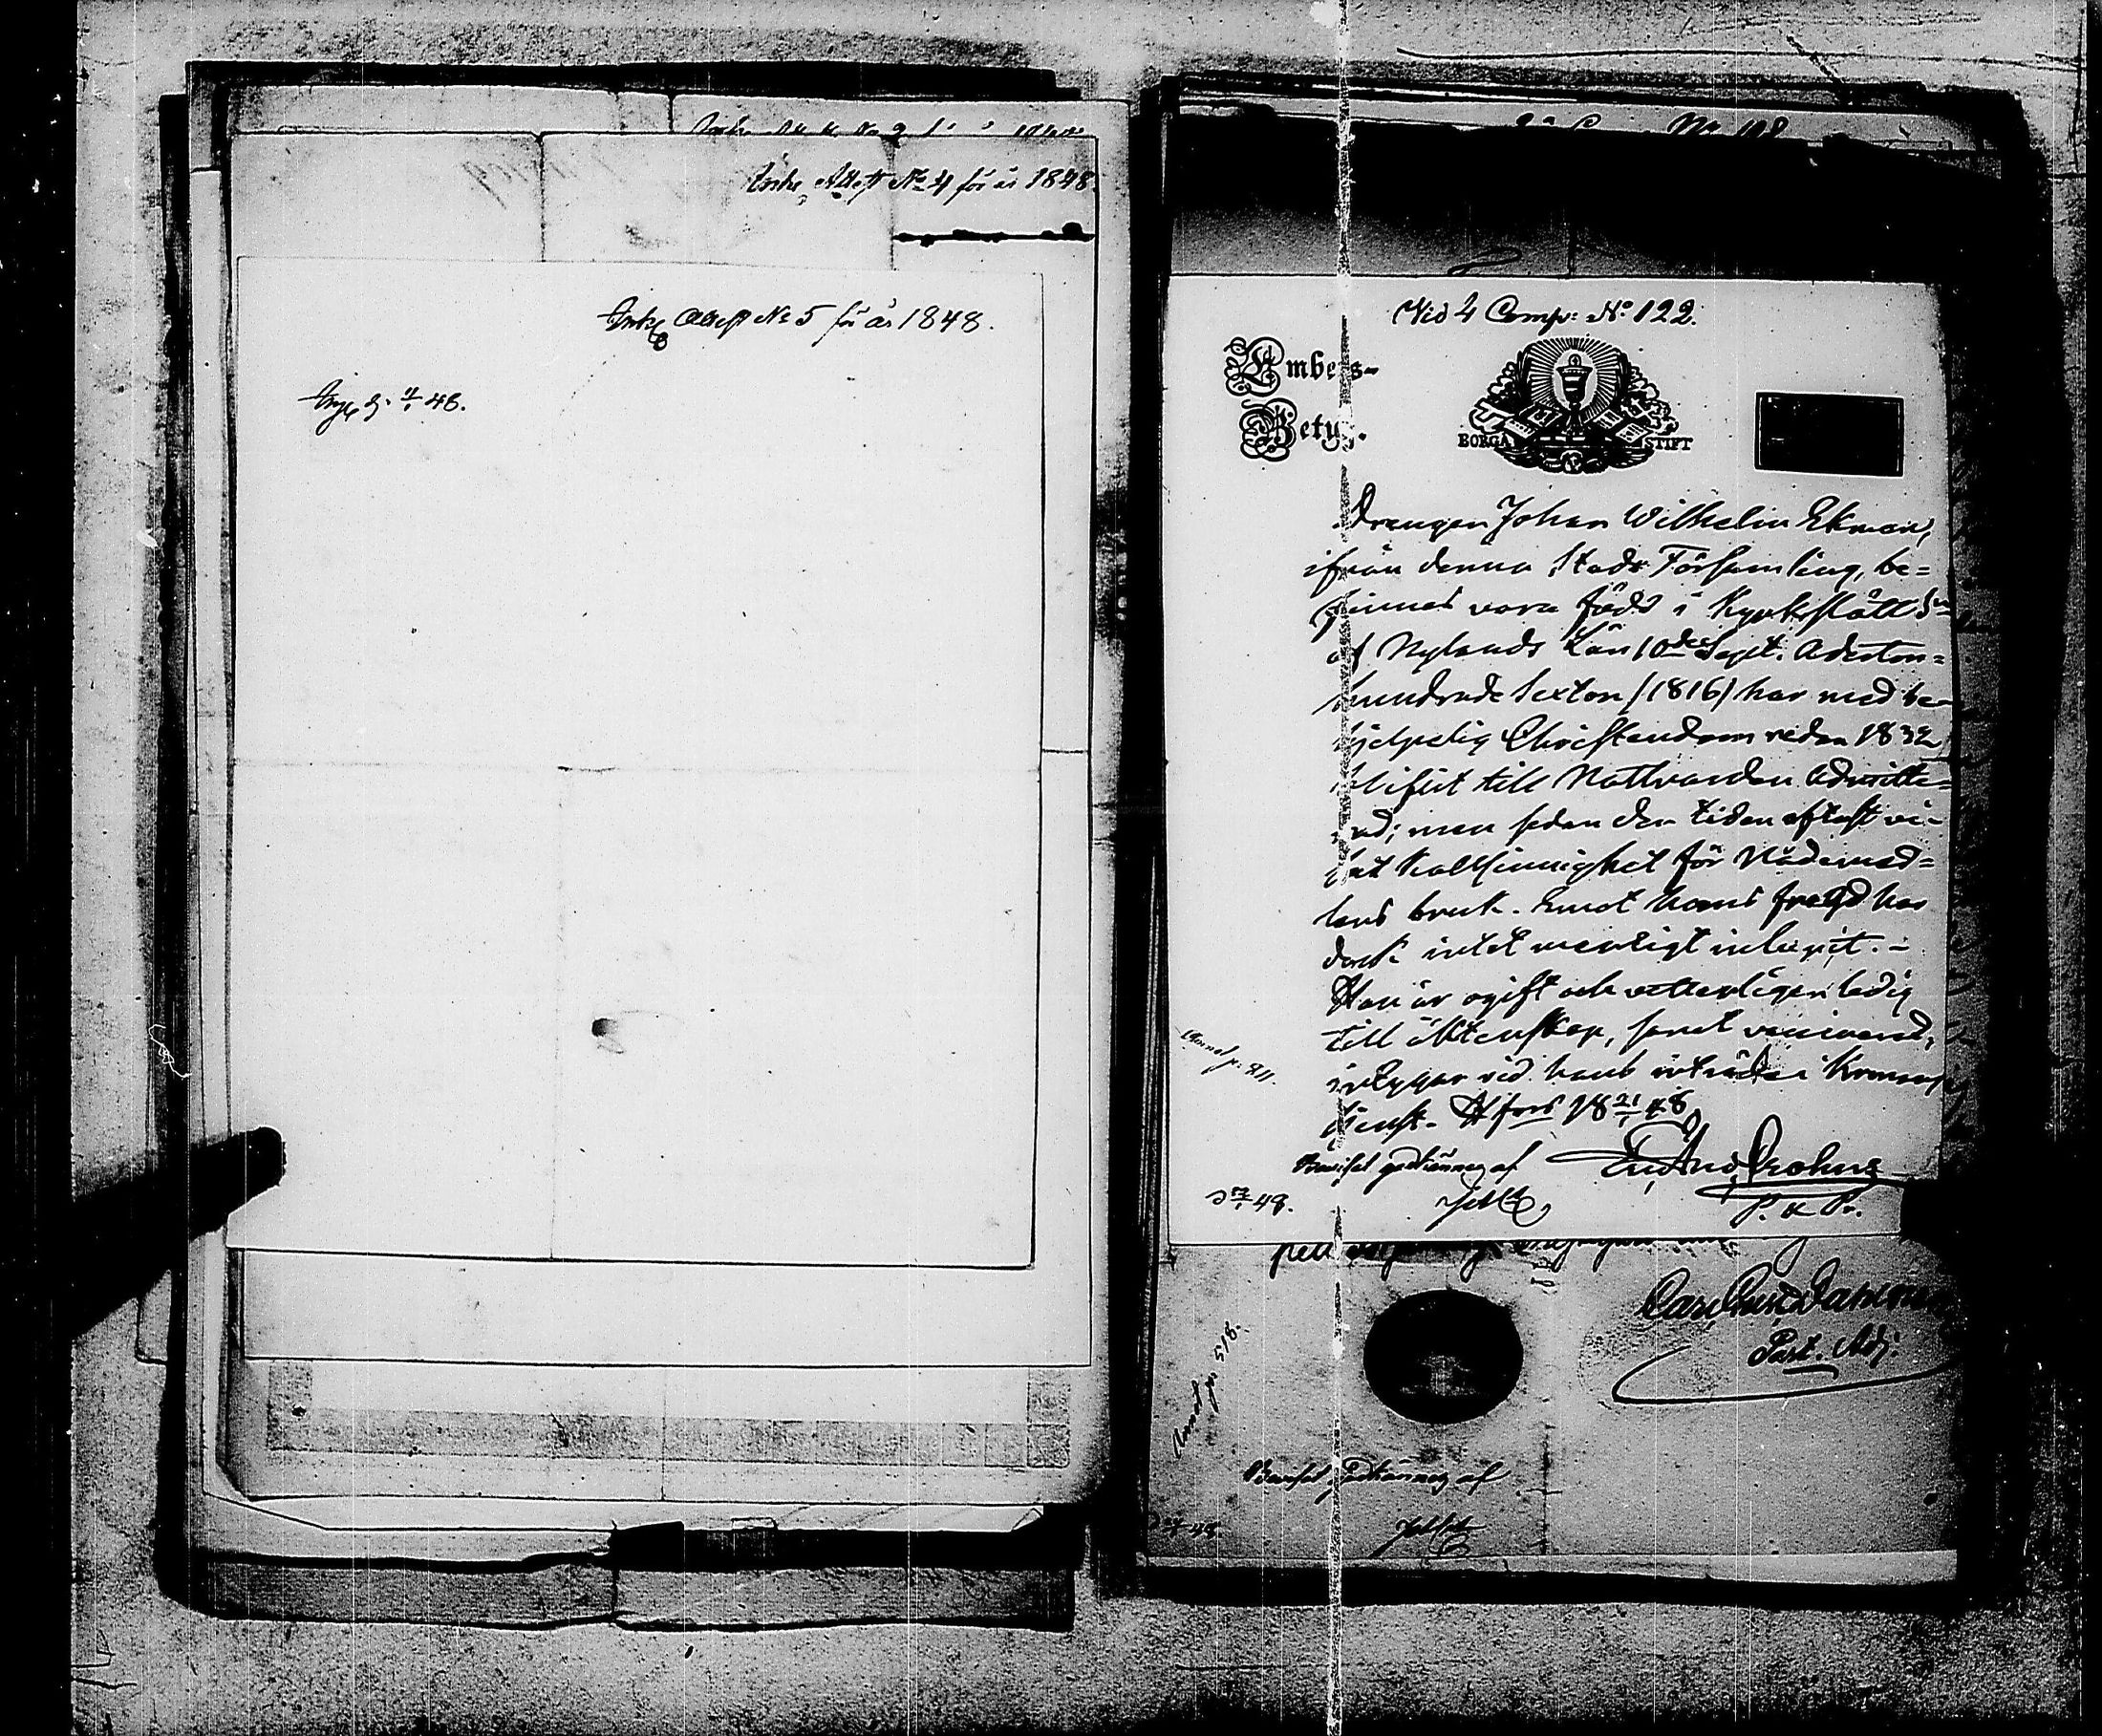 Attest No 4 för år 1848.
Attest No 5 för år 1848.
48.
Vid 4 Comp: No 122.
Embets-
Betyg.
BORGA STIFT
Drengen Johan Wilhelm Ekman,
ifrån denna Stads Församling, be=
finnes vara född i Kyrkslätt Sn
af Nylands Län 10de Sept. Aderton=
hundrade Sexton (1816) har med be-
hjelpelig Christendom redan 1832
blifvit till Nattvarden admitte=
rad; men sedan den tiden oftast vi-
sat kallsinnighet för Nådemed=
lens bruk. Emot hans fregd har
dock intet menligt inlupit. -
Han är ogift och vetterligen ledig
till äktenskap, samt vaccinerad,
vid hans inträde i Krono
tjenst. H:fors 18 21/1 48
Annot p. 811.
Beviset godkännes af
48.
And. Crohns
P. K. Pr.
Carl
Past. Adj.
Annot p. 518.
Beviset godkännes af
48.